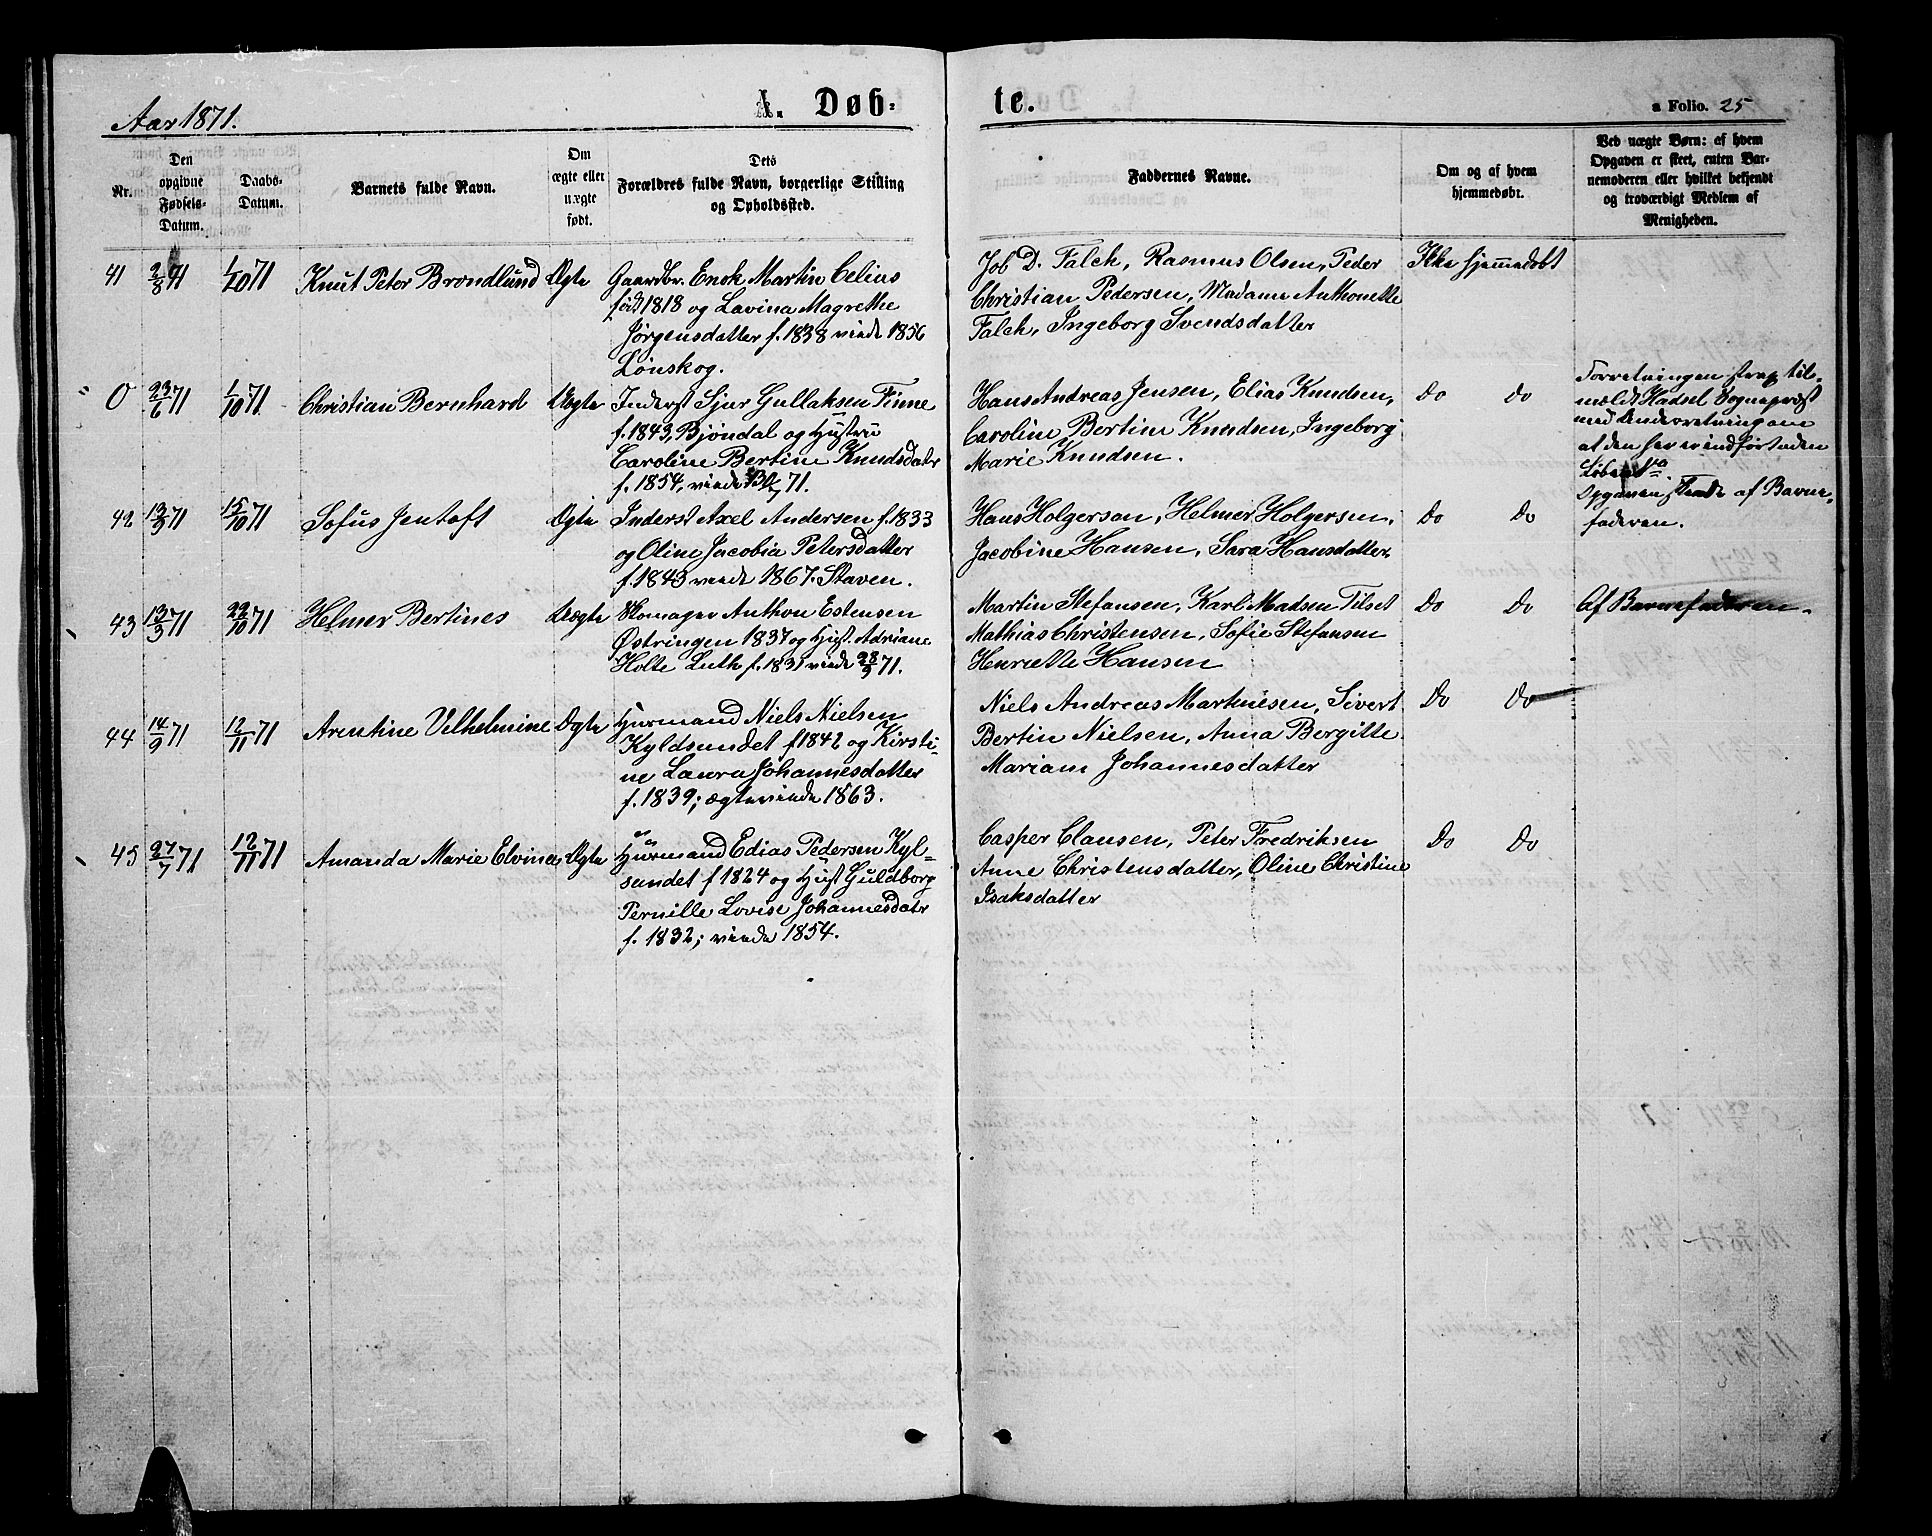 Aar 1871.
A. Døb-
te.
a Folio. 25
Nr.
Den
opgivne
Fødsels-
Datum.
Daabs-
Datum.
Barnets fulde Navn.
Om
ægte eller
uægte
født.
Dets
Forældres fulde Navn, borgerlige Stilling
og Opholdssted.
Faddernes Navne.
Om og af hvem
hjemmedøbt.
Ved uægte Børn: af hvem
Opgaven er skeet, enten Bar-
nemoderen eller hvilket bekjendt
og troværdigt Medlem af
Menigheden.
41 2/8 71 1/10 71 Knut Peter Brondlund Ægte
Gaardbr. Enok Martin Celius
født 1818 og Lavina Magrethe
Jørgensdatter f. 1838 viede 1856
Lønskog.
Job D. Falch, Rasmus Olsen, Peder
Christian Pedersen, Madame Anthonette
Falch, Ingeborg Svendsdatter
Ikke hjemmedøbt
0 23/6 71 1/10 71. Christian Bernhard Uægte
Inderst Sjur Gullaksen Finne
f. 1843, Bjöndal og Hustru
Caroline Bertine Knudsdatr
f. 1854, viede 71.
Hans Andreas Jensen, Elias Knudsen,
Caroline Bertine Knudsen, Ingeborg
Marie Knudsen.
Do Do
Forretningen strax til-
meldt Hadsel Sognepræst
med Underretning om
at den her er indført uden
Opgaven af Barne-
faderen.
42 13/9 71 15/10 71 Sofus Jentoft Ægte
Inderst Axel Andersen f. 1833
og Oline Jacobia Petersdatter
f. 1843 viede 1867. Staven.
Hans Holgerson, Helmer Holgersen,
Jacobine Hansen, Sara Hansdatter.
Do Do
43 13/3 71 22/10 71 Helmer Bertines Uægte
Skomager Anthon Estensen
Østringen 1837 og Hust. Adriane
Holte Luth f. 1831 viede 28/9 71.
Martin Stefansen, Karl Madsen Tilset
Mathias Christensen, Sofie Stefansen
Henriette Hansen
Do Do
Af Barnefaderen.
44 14/9 71 12/11 71 Arentine Velhelmine Ægte
Huusmand Niels Nielsen
Kyldsundet f 1842 og Kirsti-
ne Laura Johannesdatter
f. 1839; ægteviede 1863.
Niels Andreas Martinisen, Sivert
Bertin Nielsen, Anna Bergitte
Mariam Johannesdatter
Do Do
45 27/7 71 12/11 71 Amanda Marie Elvina Ægte
Huusmand Edias Pedersen Kyl-
sundet f 1824 og Hust Guldborg
Pernille Lovise Johannesdatr
f. 1832; viede 1854.
Casper Clausen, Peter Fredriksen
Anne Christensdatter, Oline Christine
Isaksdatter
Do Do